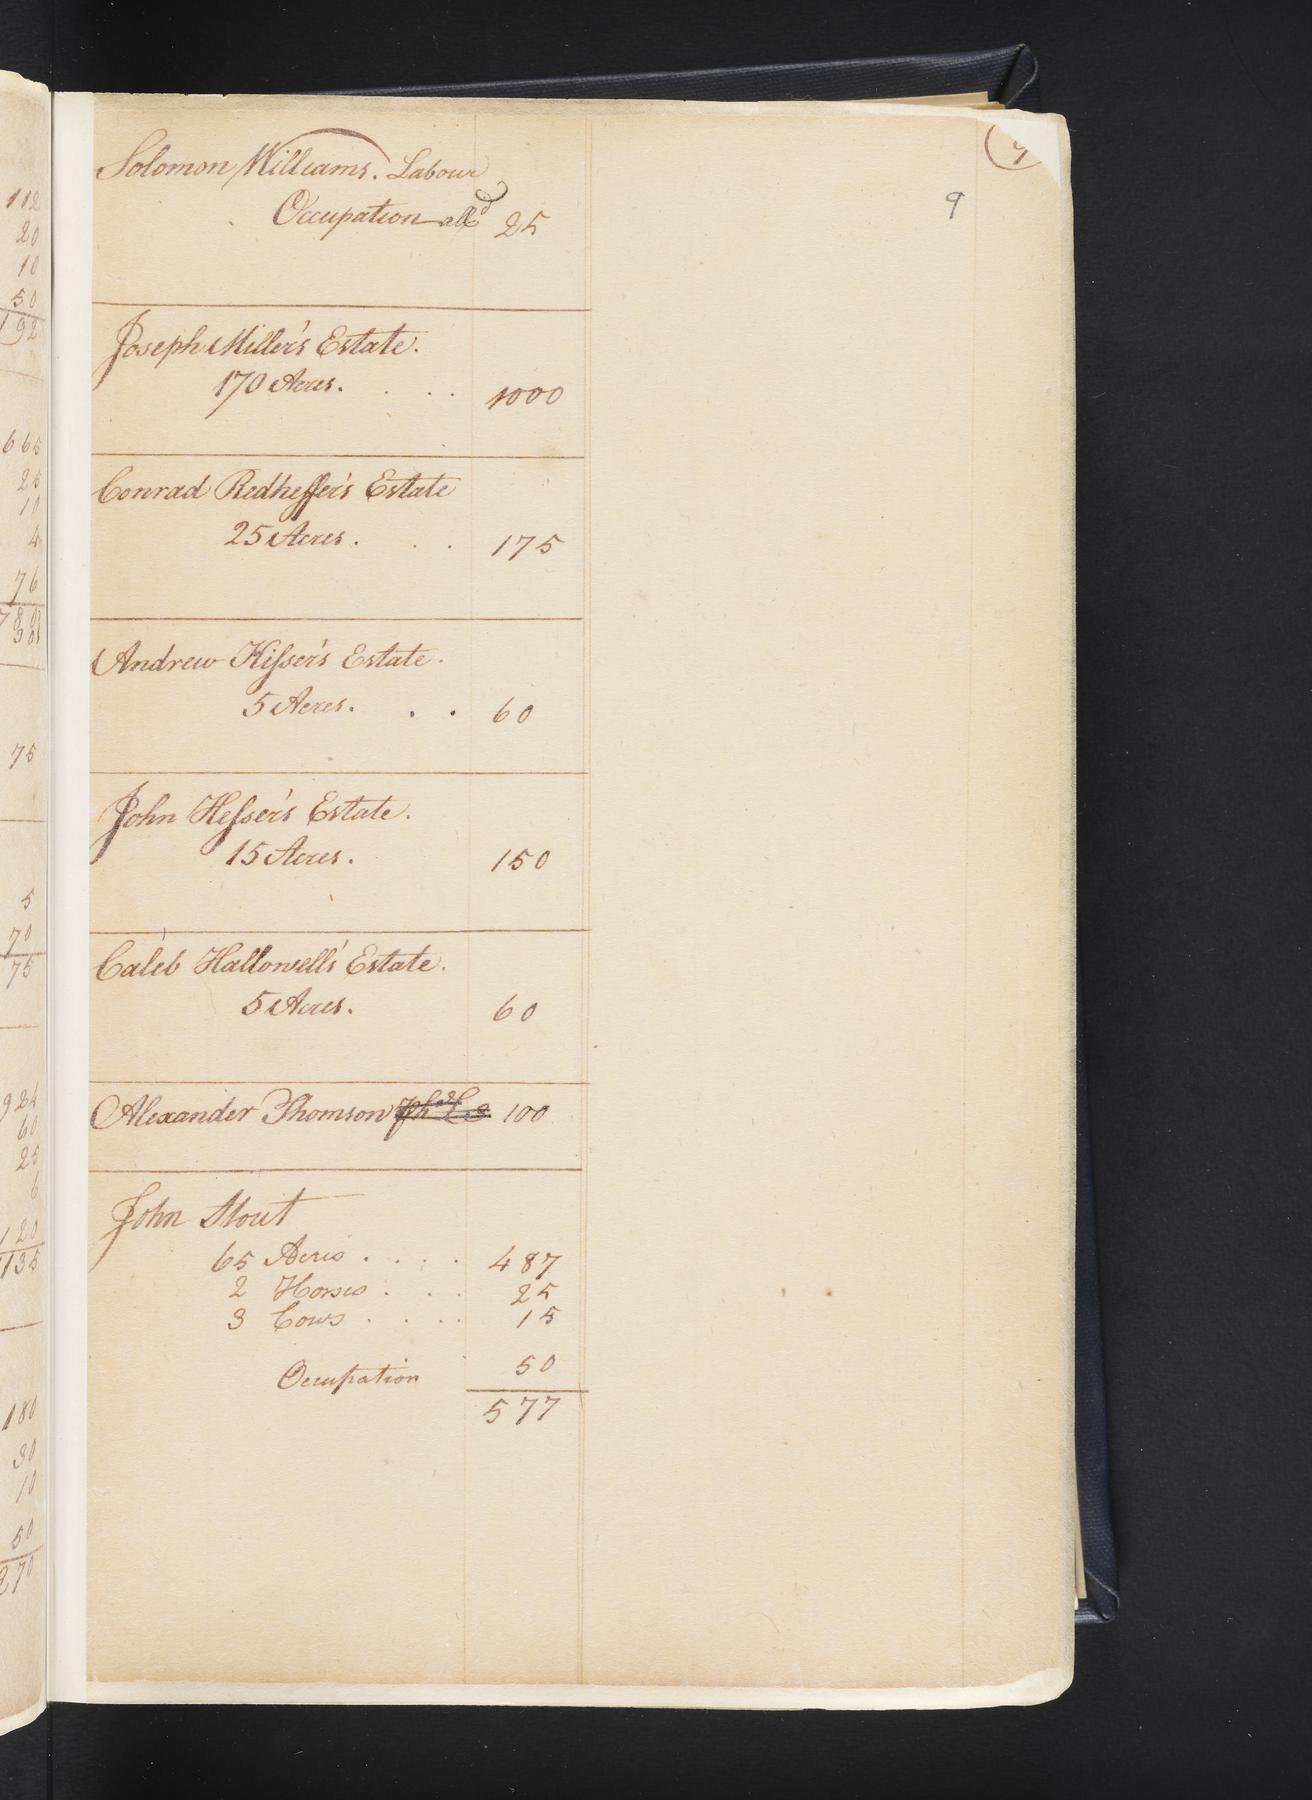 112
20
10
50
192
665
25
10
4
76
75
5
70
75
924
60
25
6
120
1135
180
30
10
50
270
9
9
Solomon Williams. Labour
Occupation alld 25
Joseph Miller's Estate.
170 Acres. . . . 1000
Conrad Redheffer's Estate
25 Acres. . . 175
Andrew Kisser's Estate.
5 Acres. . . 60
John Hesser's Estate.
15 Acres. 150
Caleb Hallowell's Estate.
5 Acres. 60
Alexander Thomson 100
John Stout
65 Acres . . . . 487
2 Horses . . . 25
3 Cows . . . . 15
Occupation 50
577